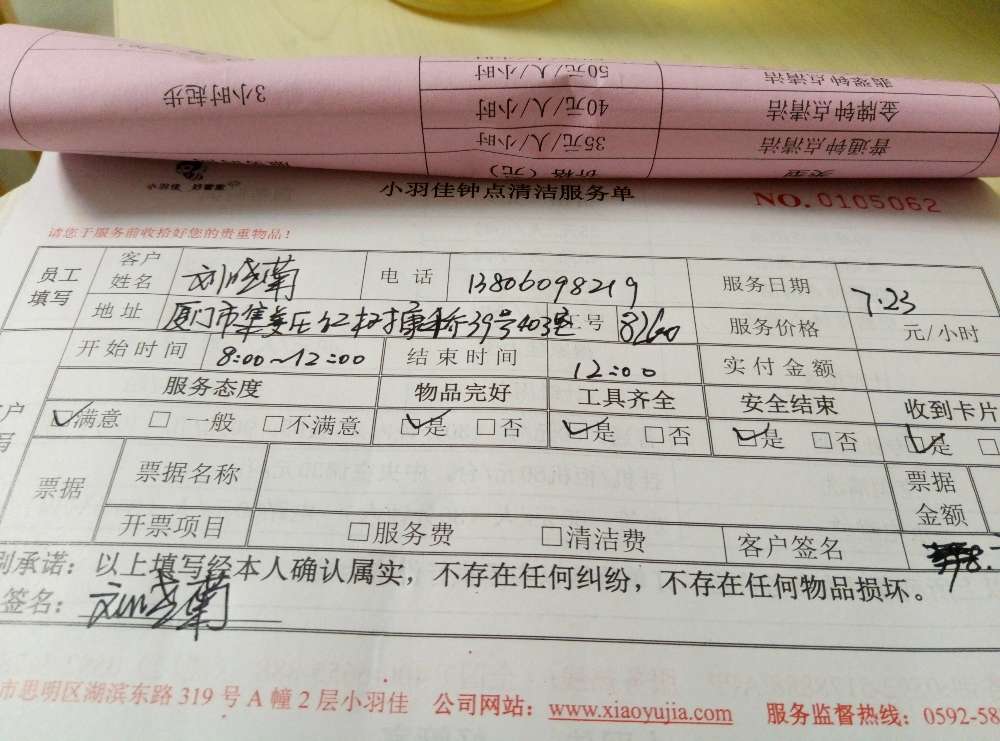 50元/人/小时 翡翠钟点清洁
3小时起步 40元/人/小时 金牌钟点清洁
35元/人/小时 普通钟点清洁
价格（元） 类型
小羽佳 好管家
小羽佳钟点清洁服务单 NO.0105062
请您于服务前收拾好您的贵重物品！
员工填写 客户姓名 刘晓菊 电话 13806098219 服务日期 7.23
地址 厦门市集美区 39号403室 工号 8260 服务价格 元/小时
开始时间 8:00~12:00 结束时间 12:00 实付金额
服务态度 物品完好 工具齐全 安全结束 收到卡片
☑满意 □一般 □不满意 ☑是 □否 ☑是 □否 ☑是 □否 ☑是 □
票据 票据名称 票据金额
开票项目 □服务费 □清洁费 客户签名
承诺：以上填写经本人确认属实，不存在任何纠纷，不存在任何物品损坏。
签名：刘晓菊
市思明区湖滨东路 319 号 A 幢 2 层小羽佳 公司网站：www.xiaoyujia.com 服务监督热线：0592-58